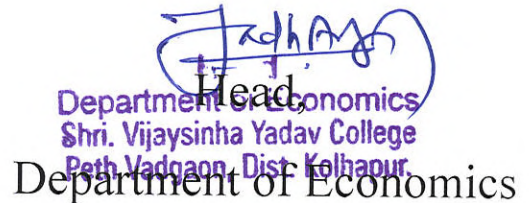 Head,
Department of Economics
Shri. Vijaysinha Yadav College
Peth Vadgaon, Dist. Kolhapur.
Department of Economics